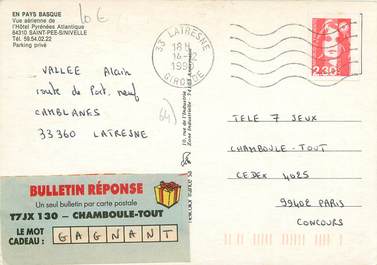 EN PAYS BASQUE
Vue aérienne de
l'Hôtel Pyrénées Atlantique
64310 SAINT-PEE-S/NIVELLE
Tél. 59.54.02.22
Parking privé
10 €
33 LATRESNE
18H
16-12
1990
GIRONDE
2,30
VALLEE Alain
route de Port neuf
CAMBLANES
33360 LATRESNE
64)
10, rue de l'Industrie
Zone Industrielle
TELE 7 JEUX
CHAMBOULE-TOUT
CEDEX 4025
99402 PARIS
CONCOURS
BULLETIN RÉPONSE
Un seul bulletin par carte postale
T7JX 130 – CHAMBOULE-TOUT
LE MOT
CADEAU :
GAGNANT